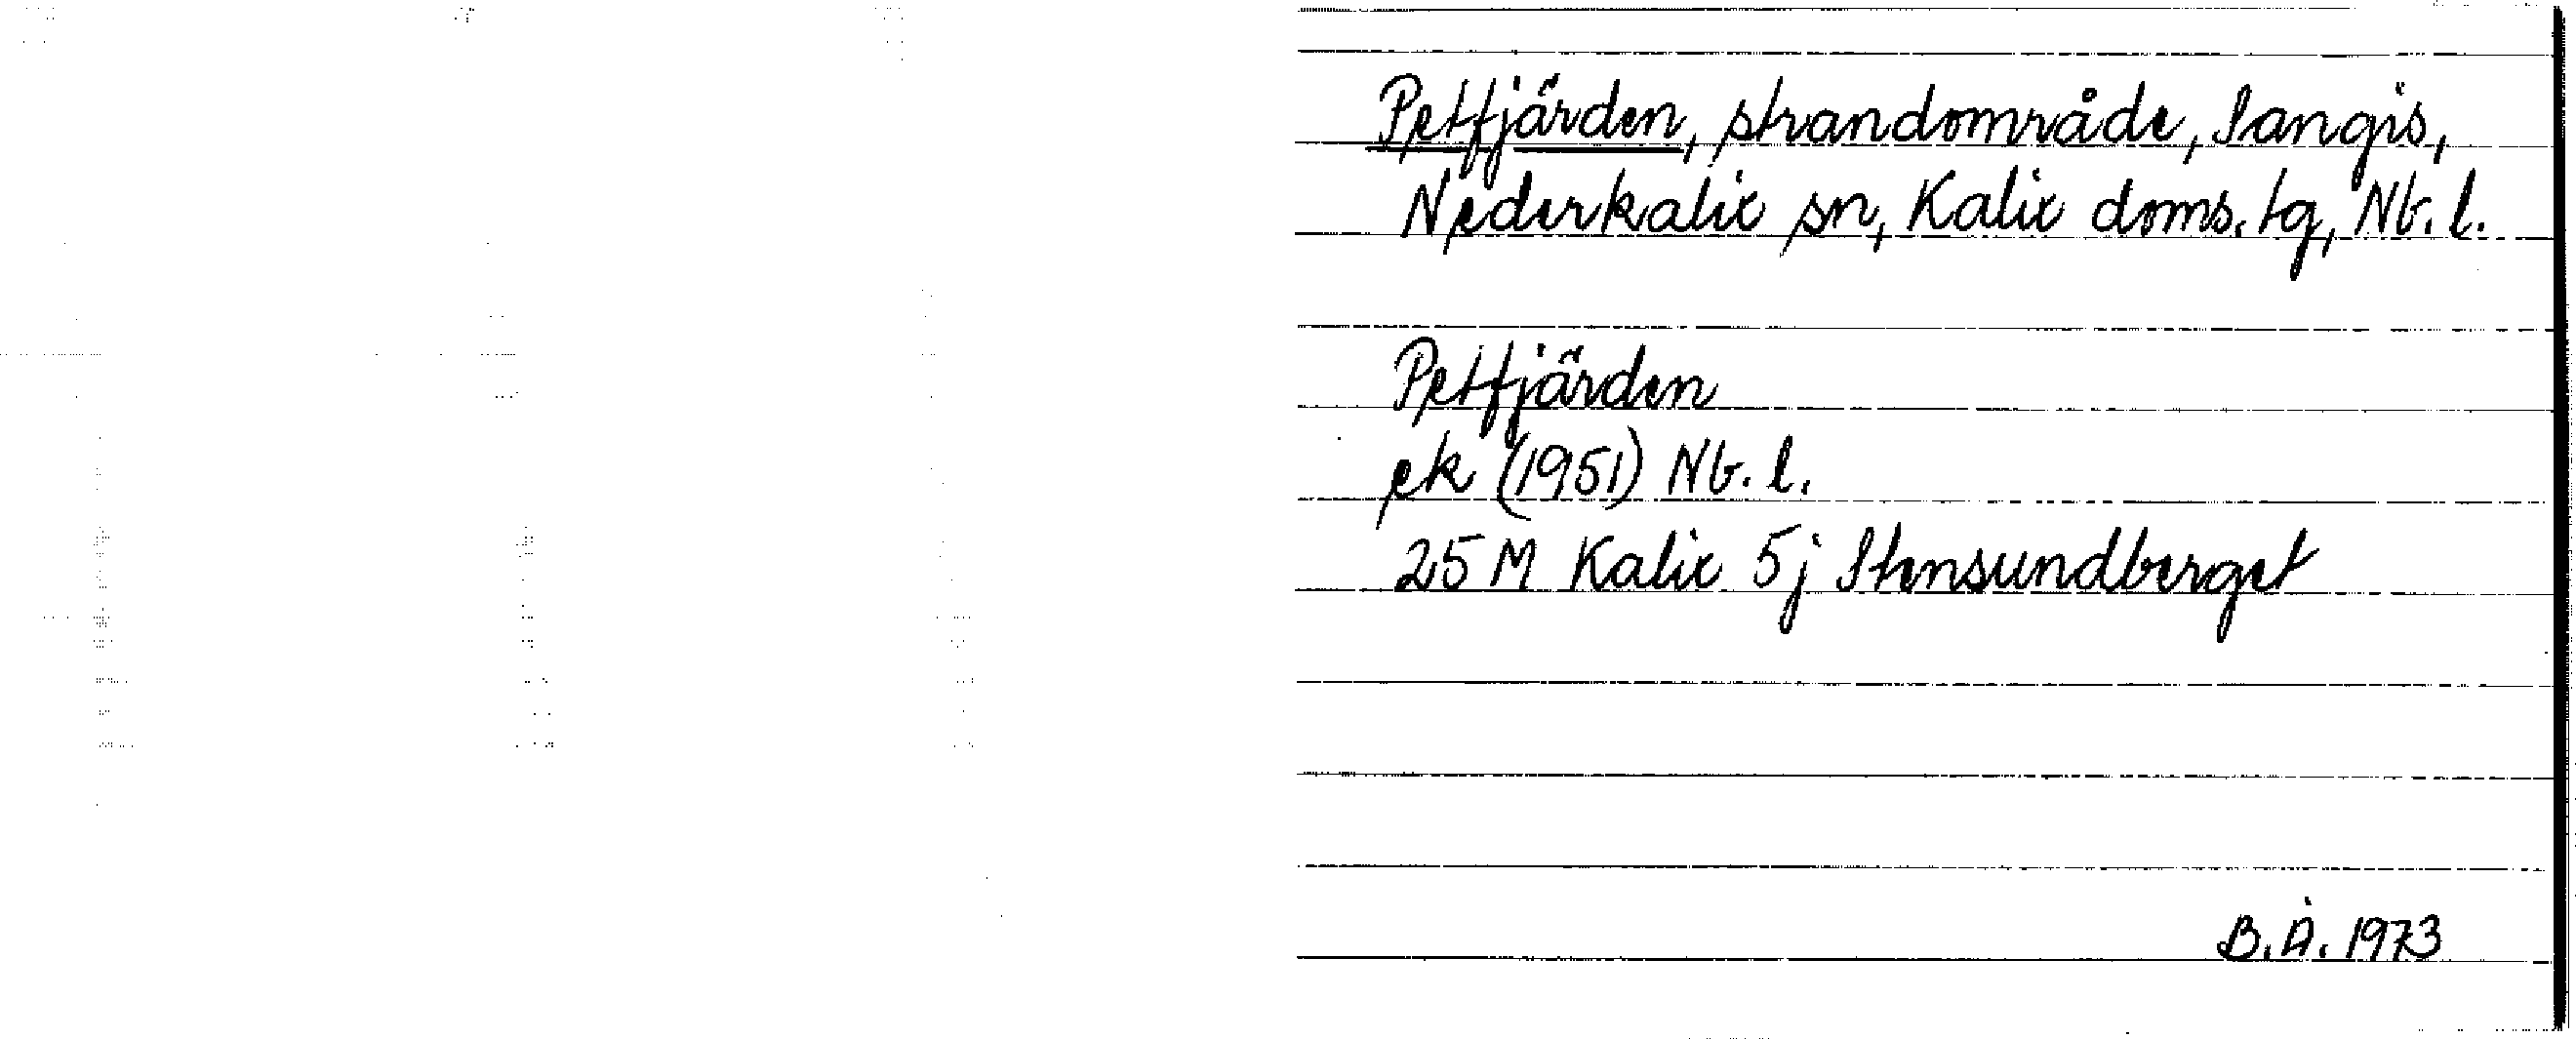 Petfjärden, strandområde, Sangis,
Nederkalix sn, Kalix doms. tg, Nb. l.
Petfjärden
ek (1951) Nb. l.
25 M Kalix 5j Stensundberget
B.Å. 1973